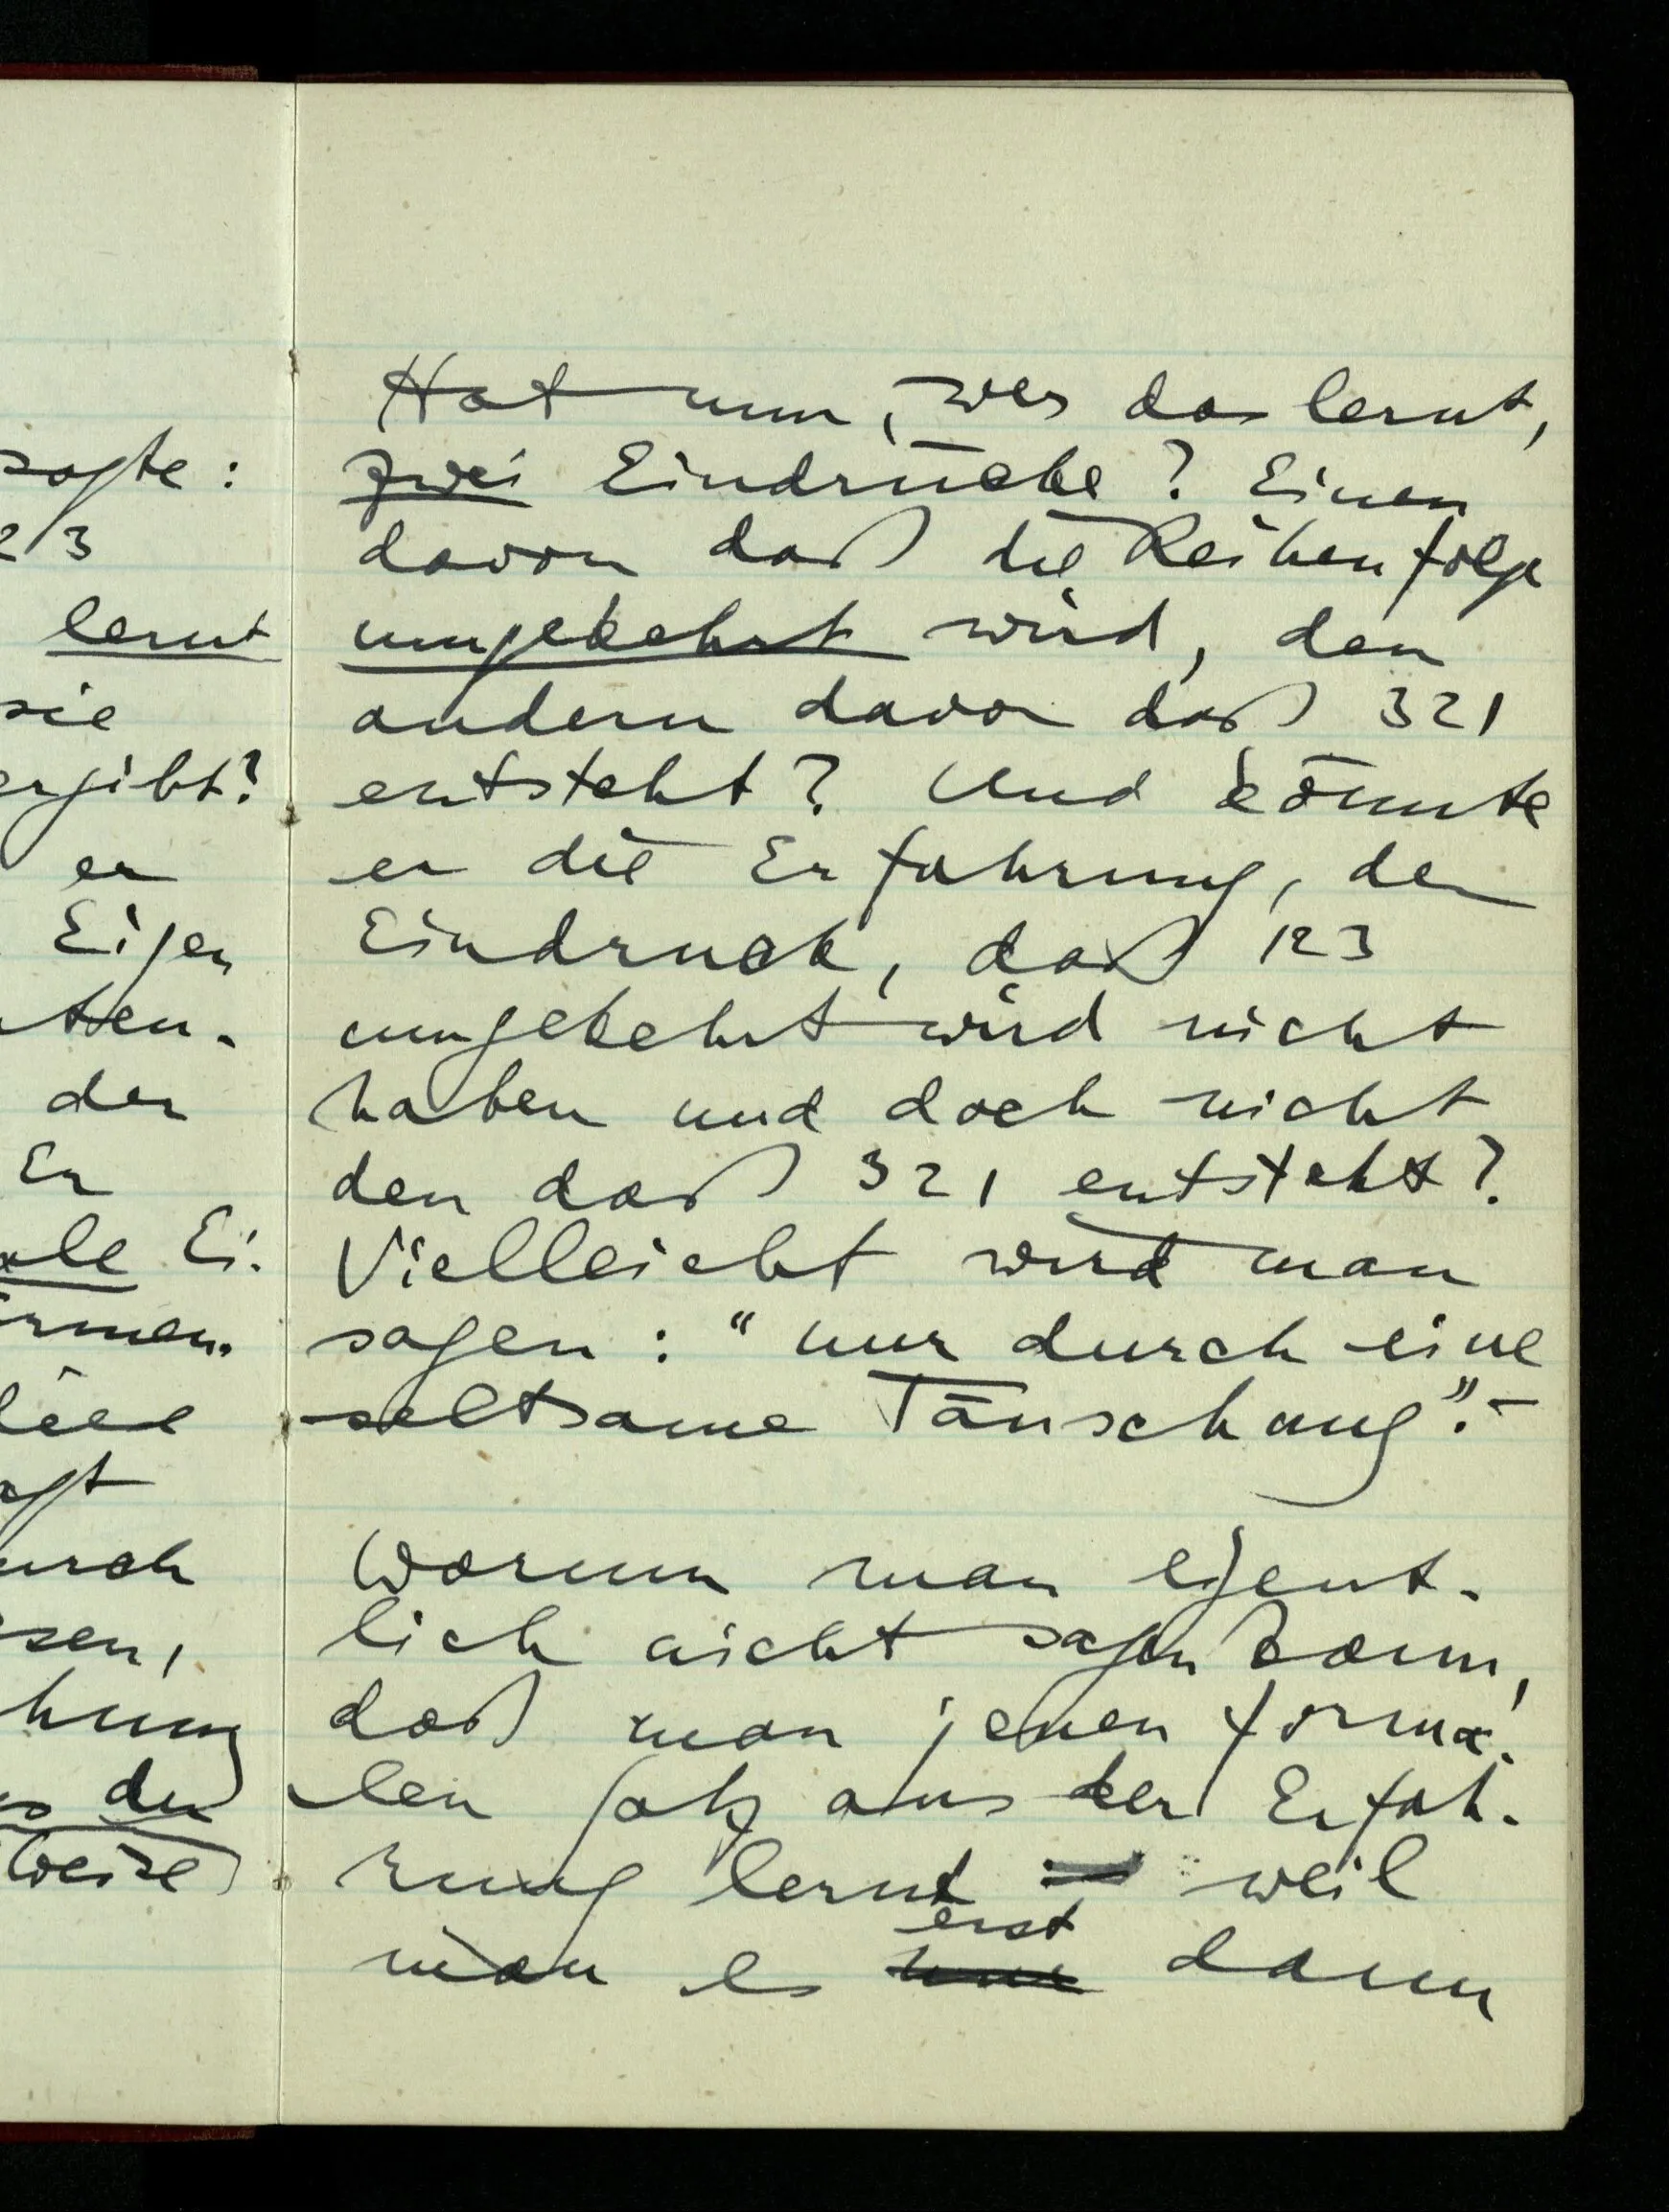 sagte:
2/3
lernt
sie
ergibt?
er
Eigen
ten-
der
Er
ale Ei-
rmen.
agt
urch
sen,
hung
der
Weise
Hat nun, wer das lernt,
zwei Eindrücke? Einen
davon daß die Reihenfolge
umgekehrt wird, den
andern davon daß 321
entsteht? Und könnte
er die Erfahrung, den
Eindruck, daß 123
umgekehrt wird nicht
haben und doch nicht
den daß 321 entsteht?
Vielleicht wird man
sagen: “nur durch eine
seltsame Täuschung”. –
Warum man eigent-
lich nicht sagen kann,
daß man jenen forma-
len Satz aus der Erfah-
rung lernt – weil
man es erst dann